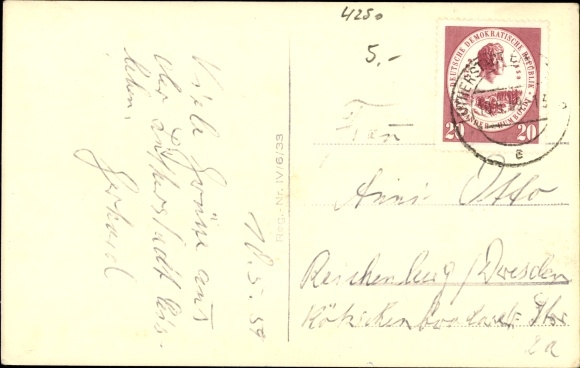 4250
5.-
DEUTSCHE DEMOKRATISCHE REPUBLIK
20 20
LUTHERSTADT E
a
Frau
Anni Otto
Reichenberg/Dresden
2a
Reg.-Nr. IV/6/33
Viele Grüße aus
der Lutherstadt Eis-
leben.
Gerhard
18.5.59